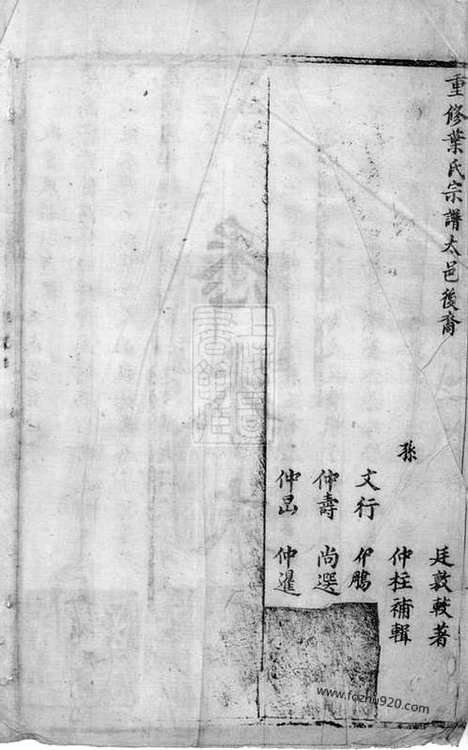 重修葉氏宗譜太邑後裔
廷敦較著
孫 仲柱補輯
文行 仲鵬
仲壽 尚選
仲昌 仲暹
www.fozhu920.com